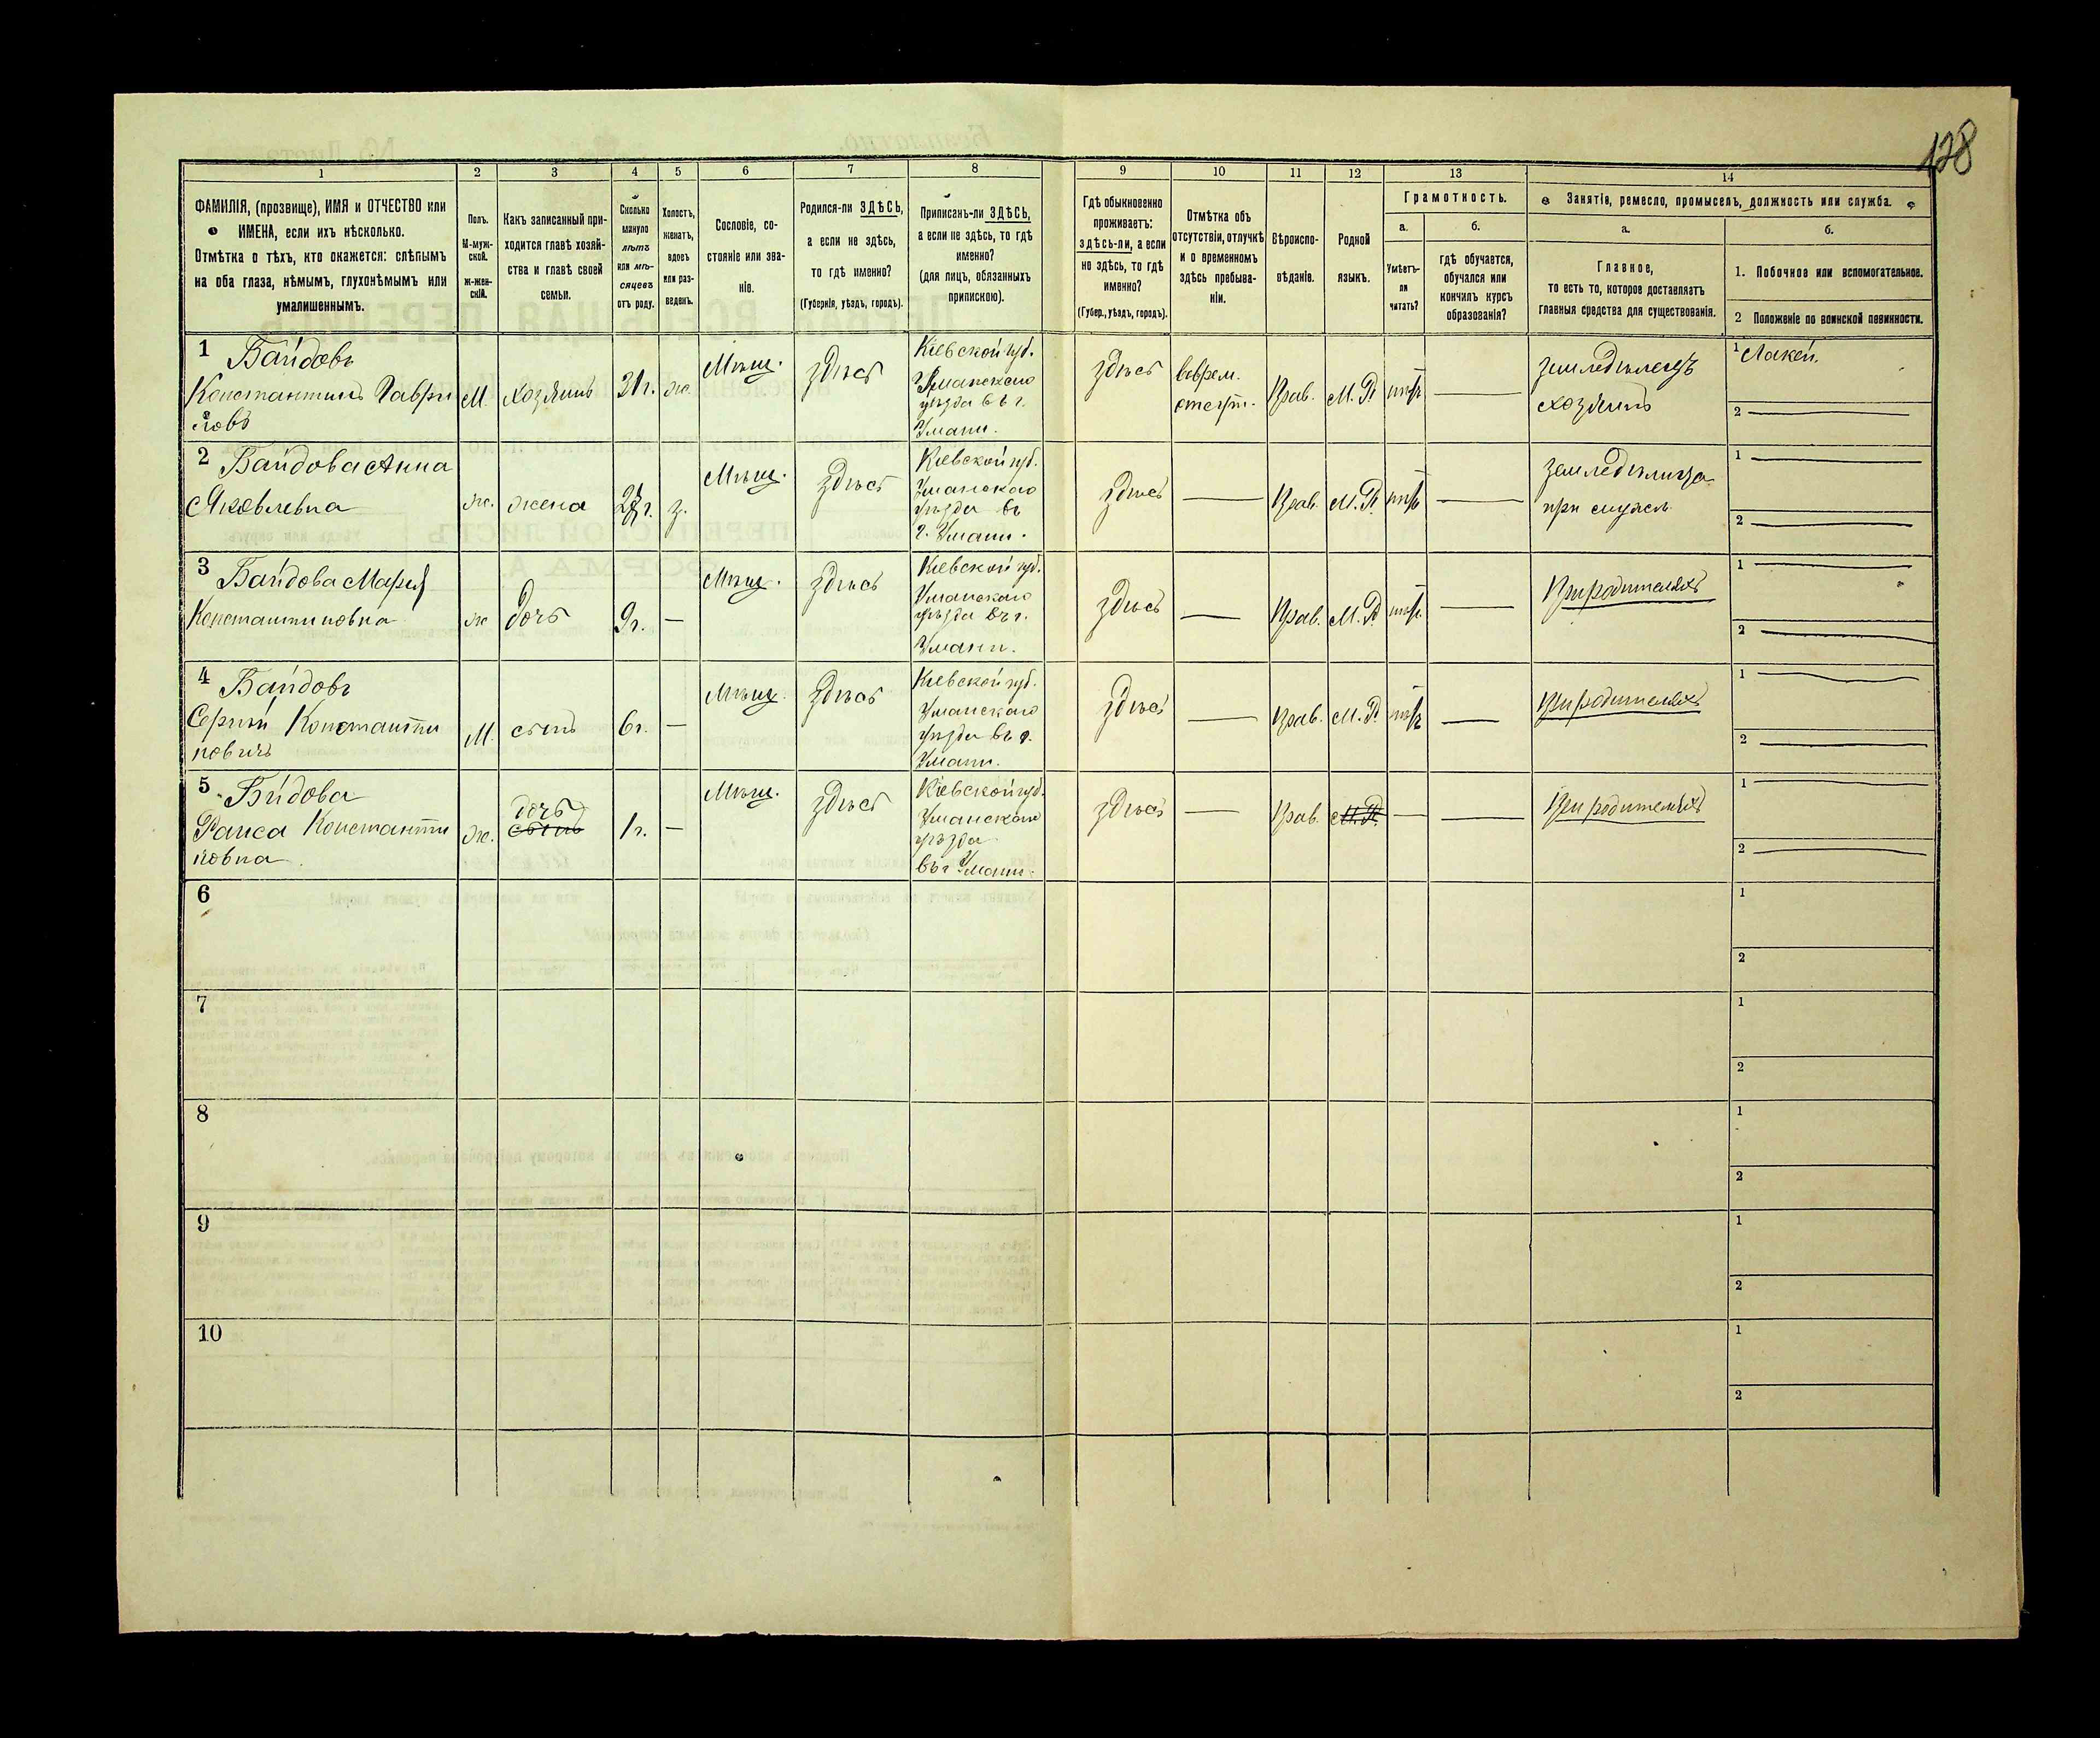 128
1 2 3 4 5 6 7 8 9 10 11 12 13 14
ФАМИЛІЯ, (прозвище), ИМЯ и ОТЧЕСТВО или
ИМЕНА, если ихъ нѣсколько.
Отмѣтка о тѣхъ, кто окажется: слѣпымъ
на оба глаза, нѣмымъ, глухонѣмымъ или
умалишеннымъ.
Полъ.
М-муж-
ской.
ж-жен-
скій.
Какъ записанный при-
ходится главѣ хозяй-
ства и главѣ своей
семьи.
Сколько
минуло
лѣтъ
или мѣ-
сяцевъ
отъ роду.
Холостъ,
женатъ,
вдовъ
или раз-
веденъ.
Сословіе, со-
стояніе или зва-
ніе.
Родился-ли ЗДѢСЬ,
а если не здѣсь,
то гдѣ именно?
(Губернія, уѣздъ, городъ).
Приписанъ-ли ЗДѢСЬ,
а если не здѣсь, то гдѣ
именно?
(для лицъ, обязанныхъ
припискою).
Гдѣ обыкновенно
проживаетъ:
здѣсь-ли, а если
не здѣсь, то гдѣ
именно?
(Губер., уѣздъ, городъ).
Отмѣтка объ
отсутствіи, отлучкѣ
и о временномъ
здѣсь пребыва-
ніи.
Вѣроиспо-
вѣданіе.
Родной
языкъ.
Грамотность.
а.
Умѣетъ-
ли
читать?
б.
гдѣ обучается,
обучался или
кончилъ курсъ
образованія?
Занятіе, ремесло, промыселъ, должность или служба.
а.
Главное,
то есть то, которое доставляетъ
главныя средства для существованія.
б.
1. Побочное или вспомогательное.
2 Положеніе по воинской повинности.
1 Байдовъ
Константинъ Гаври
ловъ
М. хозяинъ 31г. ж. Мѣщ. здѣсь
Кіевской губ.
Уманскаго
уѣзда въ г.
Умани.
здѣсь
Прав. М.Р. нѣтъ —
земледѣлецъ
хозяинъ
1 Лакей.
2 —
2 Байдова Анна
Яковлевна
ж. жена з. Мѣщ. здѣсь
Кіевской губ.
Уманскаго
уѣзда въ
г. Умани.
здѣсь — Прав. М.Р. нѣтъ —
при мужѣ
1 —
2 —
3 Байдова Марія
Константиновна
ж дочь 9г. — Мѣщ. здѣсь
Кіевской губ.
Уманскаго
уѣзда въ г.
Умани.
здѣсь — Прав. М.Р. нѣтъ —
При родителяхъ
1 —
2 —
4 Байдовъ
Сергѣй Константи
новичъ
М. сынъ 6г. — Мѣщ. здѣсь
Кіевской губ.
Уманскаго
уѣзда въ г.
Умани.
здѣсь — Прав. М.Р. нѣтъ —
При родителяхъ
1 —
2 —
5 Бйдова
Раиса Константи
новна
ж. дочь
сынъ
1г. — Мѣщ. здѣсь
Кіевской губ.
Уманскаго
уѣзда
въ г Умани.
здѣсь — Прав. М.Р. — —
При родителяхъ
1 —
2 —
6
1
2
7
1
2
8
1
2
9
1
2
10
1
2